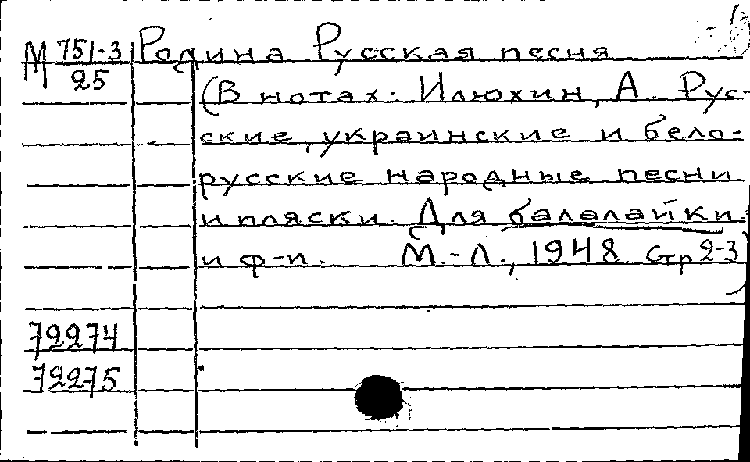 М 751-3/25 Родина Русская песня
(В нотах: Илюхин, А. Рус-
ские, украинские и бело-
русские народные песни
и пляски. Для балалайки
и ф-п. М.-Л., 1948 Стр 2-3)
72274
72275